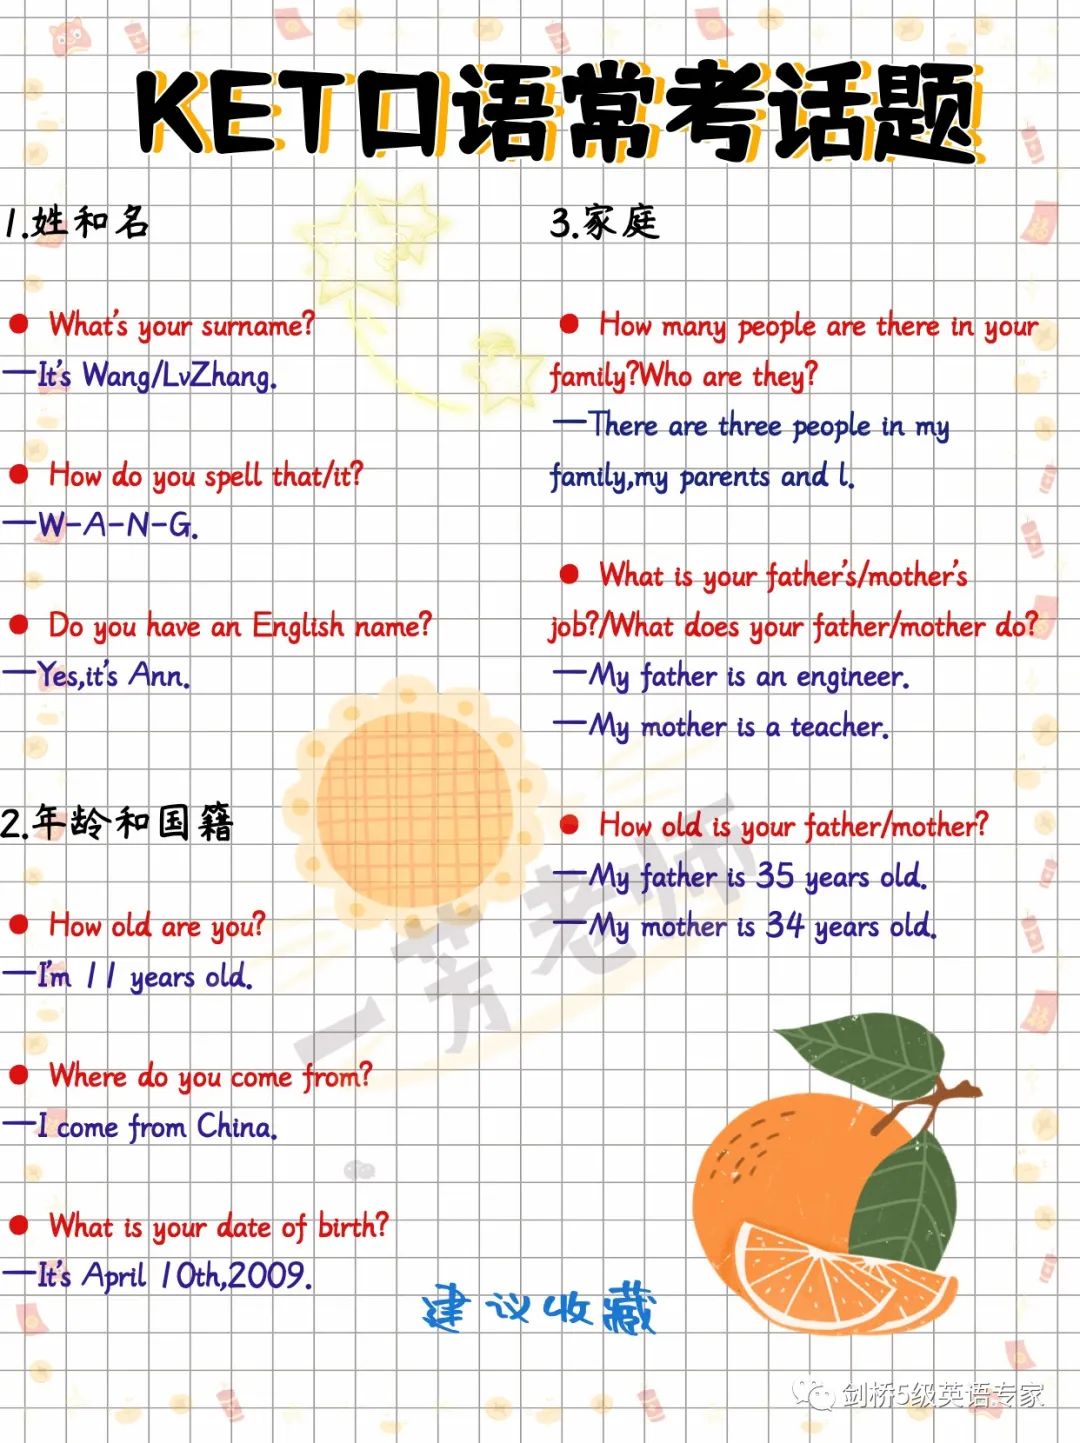 KET口语常考话题
1.姓和名
● What's your surname?
—It's Wang/LvZhang.
● How do you spell that/it?
—W-A-N-G.
● Do you have an English name?
—Yes,it's Ann.
2.年龄和国籍
● How old are you?
—I'm 11 years old.
● Where do you come from?
—I come from China.
● What is your date of birth?
—It's April 10th,2009.
3.家庭
● How many people are there in your
family?Who are they?
—There are three people in my
family,my parents and l.
● What is your father's/mother's
job?/What does your father/mother do?
—My father is an engineer.
—My mother is a teacher.
● How old is your father/mother?
—My father is 35 years old.
—My mother is 34 years old.
一芳老师
建议收藏
剑桥5级英语专家